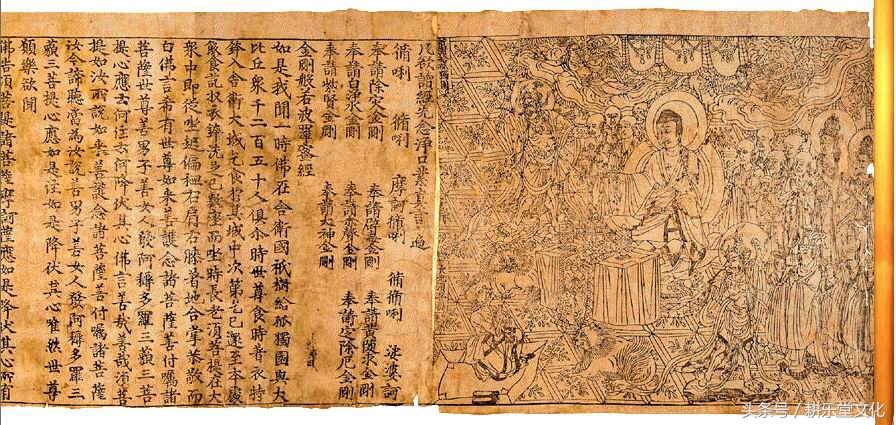 凡欲讀經先念淨口業真言一遍
脩唎 脩唎 摩訶脩唎 脩脩唎 娑婆訶
奉請除災金剛 奉請辟毒金剛 奉請黃隨求金剛
奉請白淨水金剛 奉請赤聲金剛 奉請定除厄金剛
奉請紫賢金剛 奉請大神金剛
金剛般若波羅蜜經
如是我聞一時佛在舍衛國祇樹給孤獨園與大
比丘眾千二百五十人俱尒時世尊食時著衣持
鉢入舍衛大城乞食於其城中次第乞已還至本處
飯食訖收衣鉢洗足已敷座而坐時長老須菩提在大
眾中即從坐起偏袒右肩右膝著地合掌恭敬而
白佛言希有世尊如來善護念諸菩薩善付囑諸
菩薩世尊善男子善女人發阿耨多羅三藐三菩
提心應云何住云何降伏其心佛言善哉善哉須菩
提如汝所說如來善護念諸菩薩善付囑諸菩薩
汝今諦聽當為汝說善男子善女人發阿耨多羅三
藐三菩提心應如是住如是降伏其心唯然世尊
願樂欲聞
佛告須菩提諸菩薩摩訶薩應如是降伏其心所有
头条号 / 耕乐堂文化